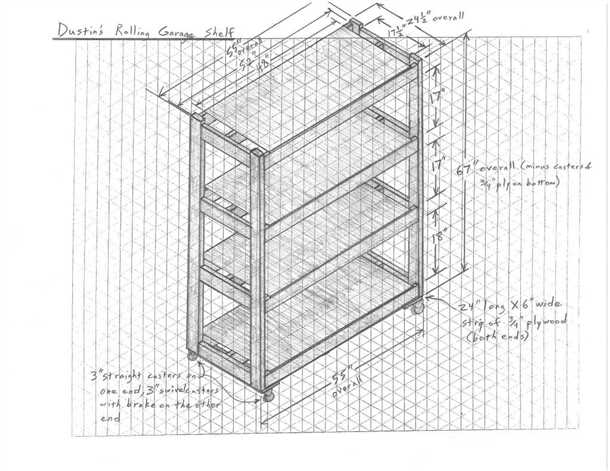 Dustin's Rolling Garage Shelf
17 1/2"
24 1/2" overall
55" overall
52"
48"
17"
17"
67" overall (minus casters &
3/4" ply on bottom)
18"
24" long X 6" wide
strip of 3/4" plywood
(both ends)
55"
overall
3" straight casters on
one end, 3" swivel casters
with brake on the other
end